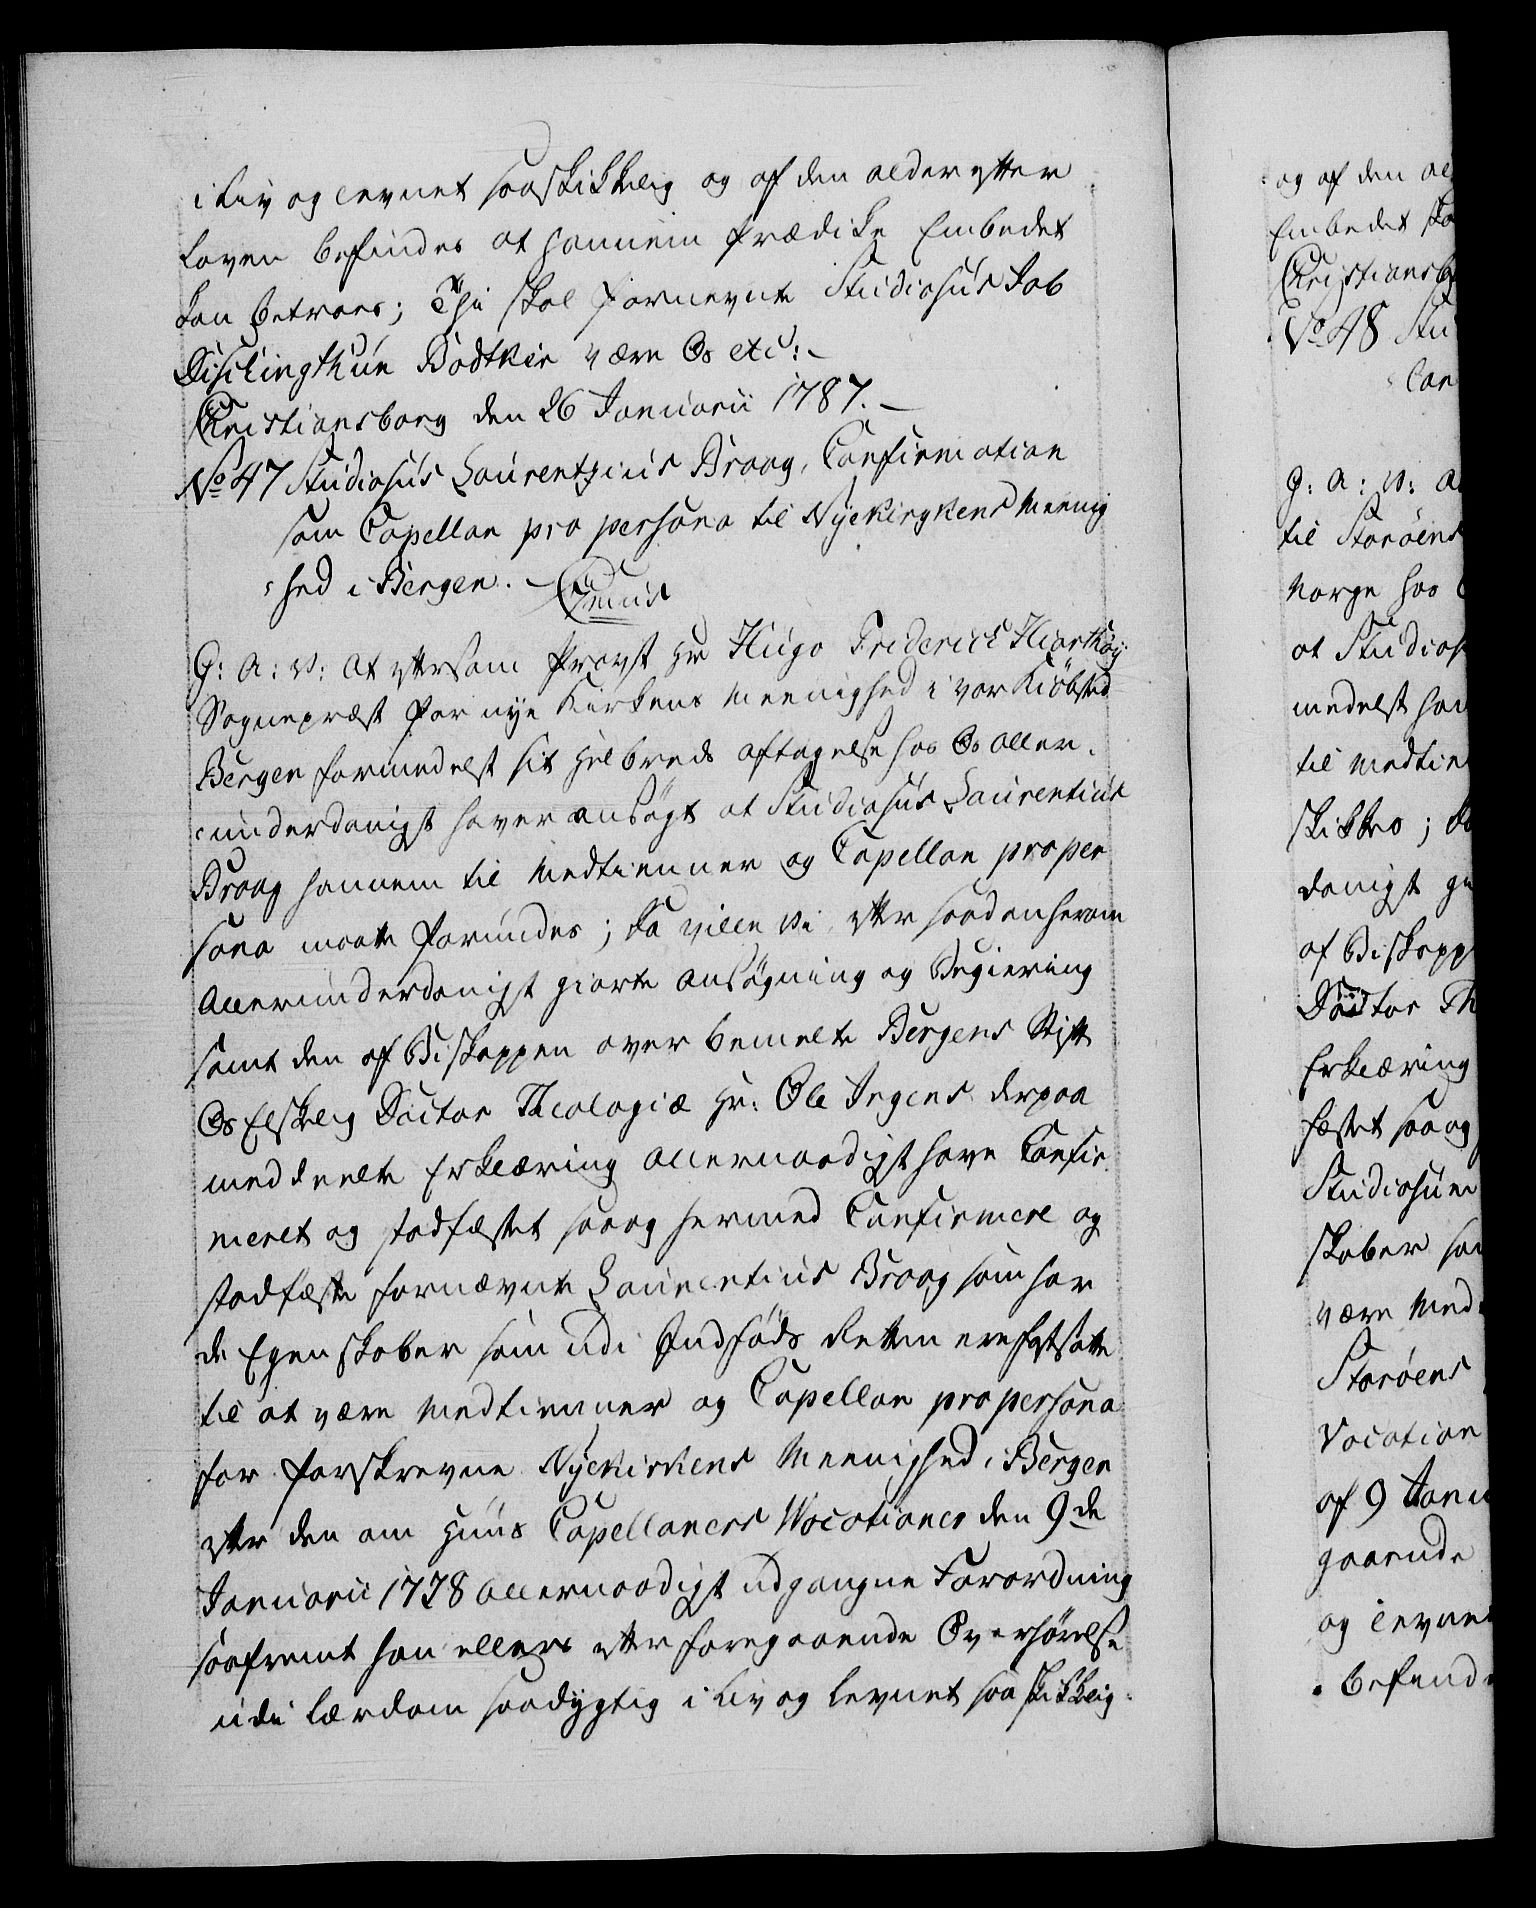 i Liv og levnet saa skikkelig og af den alder efter
Loven befindes at hannem Prædike Embedet
kan betroes; Thi skal fornevnte Studiosus Job
Dischingthun Bödtker være Os etc:
Christiansborg den 26 Januarii 1787.
No 47 Studiosus Laurentzius Broag, Confirmation
som Capellan pro persona til Nyekirkens Meenig
hed i Bergen. Gratis
G: A: V: At eftersom Provst Hr Hugo Friderich Hiorthøy
Sognepræst for nye Kirkens Meenighed i vor Kiöbsted
Bergen formedelst sit Helbreds aftagelse hos Os aller-
underdanigst haver ansögt at Studiosus Laurentius
Broag hannem til Medtienner og Capellan pro per
sona maatte forundes; Da ville Vi efter saadan herom
Allerunderdanigst giorte Ansøgning og Begiering
samt den af Biskoppen over bemelte Bergens Stift
Os Elskelig Doctor Theologiæ Hr: Ole Irgens derpaa
meddeelte Erklæring Allernaadigst have Confir
meret og stadfæstet saa og hermed Confirmere og
stadfæste fornævnte Laurentius Broag som har
de Egenskaber som udi Indføds Retten ere fastsatte
til at være Medtienner og Capellan pro persona
for forskrevne Nyekirkens Meenighed i Bergen
efter den om Huus Capellaners Vocationer den 9de
Januarii 1778 Allernaadigst udgangne Forordning
saafremt han ellers efter foregaaende Overhörelse
udi Lærdom saa dygtig i Liv og Levnet saa skikkelig
og af den al
Embedet ka
Christiansb
No 48 Stu
Con
G: A: V: A
til Storöens
Norge hos
at Studios
medelst han
til Medtien
skikkes; Da
danigst gi
af Biskopp
Doctor Th
Erklæring
fæstet saa og
Studiosum
skaber som
være Med
Storöens
Vocation
af 9 Janu
gaaende
og Levnet
befinde